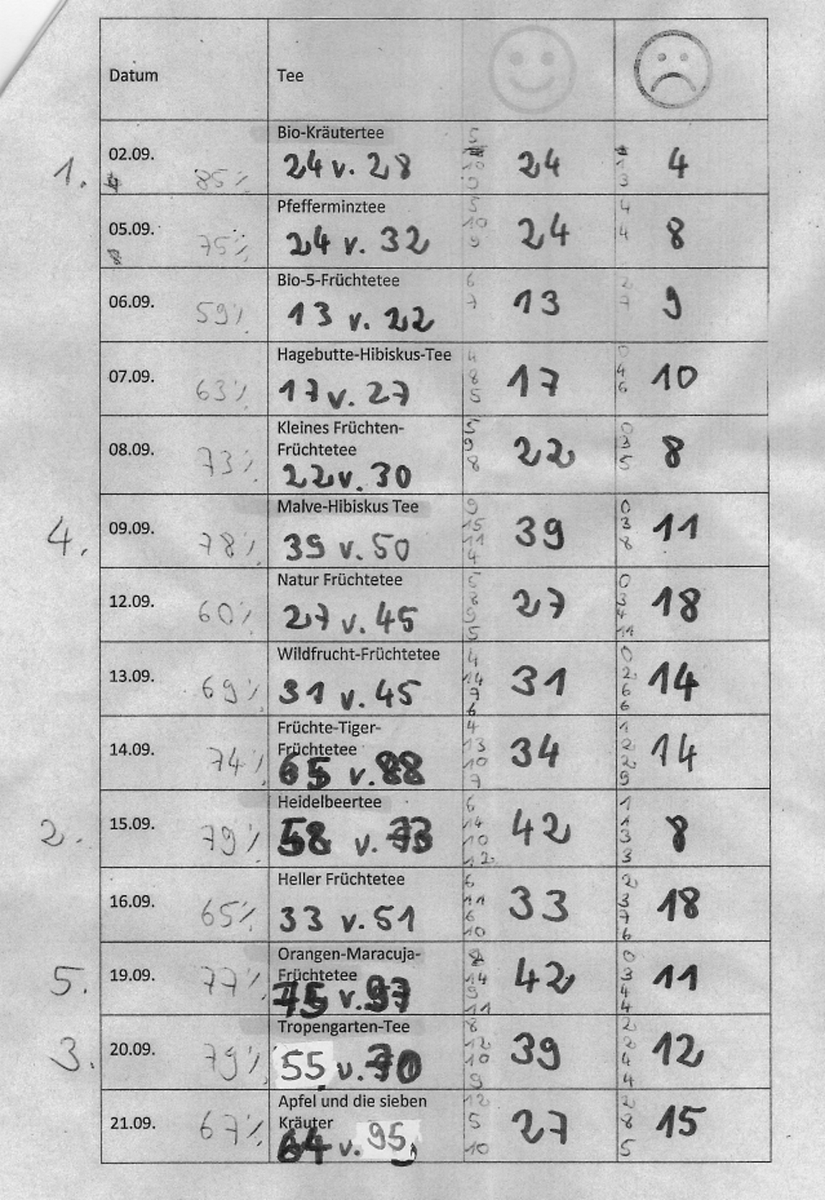 Datum Tee
Bio-Kräutertee
1. 02.09. 85% 24 v. 28 24 4
Pfefferminztee
05.09. 75% 24 v. 32 5 10 9 24 4 4 8
Bio-5-Früchtetee
06.09. 59% 13 v. 22 6 7 13 2 7 9
Hagebutte-Hibiskus-Tee
07.09. 63% 17 v. 27 4 8 5 17 0 4 6 10
Kleines Früchten-
Früchtetee
08.09. 73% 22 v. 30 5 9 8 22 0 3 5 8
Malve-Hibiskus Tee
4. 09.09. 78% 39 v. 50 9 15 11 4 39 0 3 8 11
Natur Früchtetee
12.09. 60% 27 v. 45 5 8 9 5 27 0 3 4 11 18
Wildfrucht-Früchtetee
13.09. 69% 31 v. 45 4 14 7 6 31 0 2 6 6 14
Früchte-Tiger-
Früchtetee
14.09. 74% 65 v. 88 4 13 10 7 34 1 2 2 9 14
Heidelbeertee
2. 15.09. 79% 58 v. 73 6 14 10 12 42 1 1 3 3 8
Heller Früchtetee
16.09. 65% 33 v. 51 6 11 6 10 33 2 3 7 6 18
Orangen-Maracuja-
Früchtetee
5. 19.09. 77% 75 v. 97 8 14 9 11 42 0 3 4 4 11
Tropengarten-Tee
3. 20.09. 79% 55 v. 70 8 12 10 9 39 2 2 4 4 12
Apfel und die sieben
Kräuter
21.09. 67% 64 v. 95 12 5 10 27 2 8 5 15